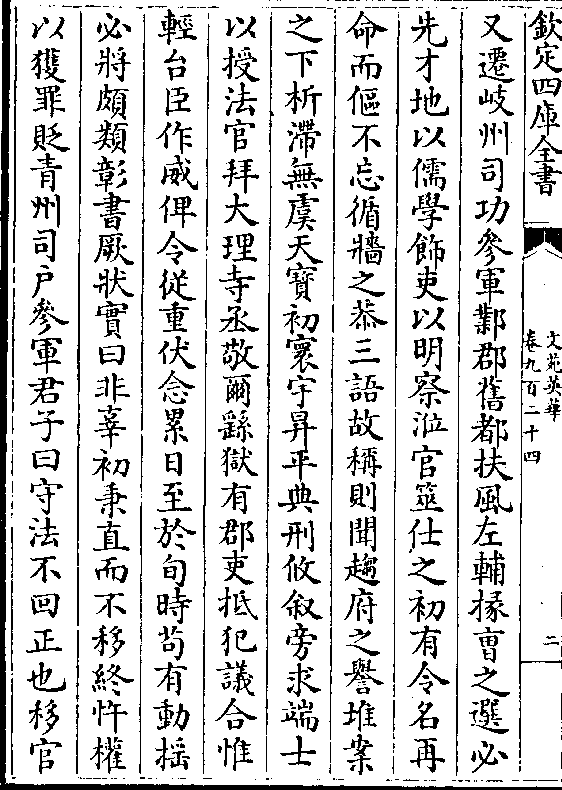 欽定四庫全書
文苑英華
卷九百二十四
二
又遷岐州司功參軍鄴郡舊都扶風左輔掾曹之選必
先才地以儒學飾吏以明察涖官筮仕之初有令名再
命而傴不忘循牆之恭三語故稱則聞趨府之譽堆案
之下析滯無虞天寳初寰宇昇平典刑攸叙旁求端士
以授法官拜大理寺丞敬爾繇獄有郡吏抵犯議合惟
輕台臣作威俾令從重伏念累日至於旬時苟有動揺
必將頗類彰書厥狀實曰非辜初秉直而不移終忤權
以獲罪貶青州司户參軍君子曰守法不回正也移官